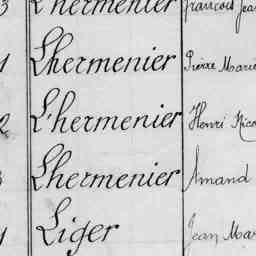 3 L'hermenier François Jea
1 Lhermenier Pierre Marie
2 L'hermenier Henri Nico
Lhermenier Amand
1 Liger Jean Mar